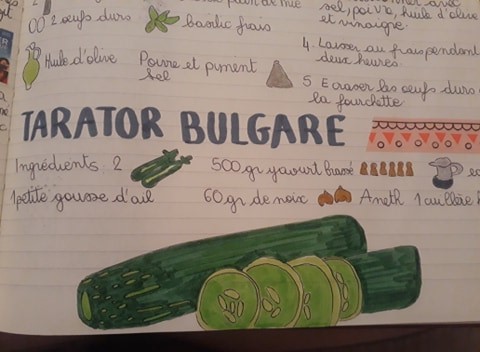 2 œufs durs basilic frais
sel, poivre, huile d'olive
et vinaigre.
Huile d'olive Poivre et piment
sel
4. Laisser au frais pendant
deux heures
5 Ecraser les œufs durs
la fourchette
TARATOR BULGARE
Ingrédients 2 500 gr yaourt brassé
1 petite gousse d'ail 60 gr de noix Aneth 1 cuillère